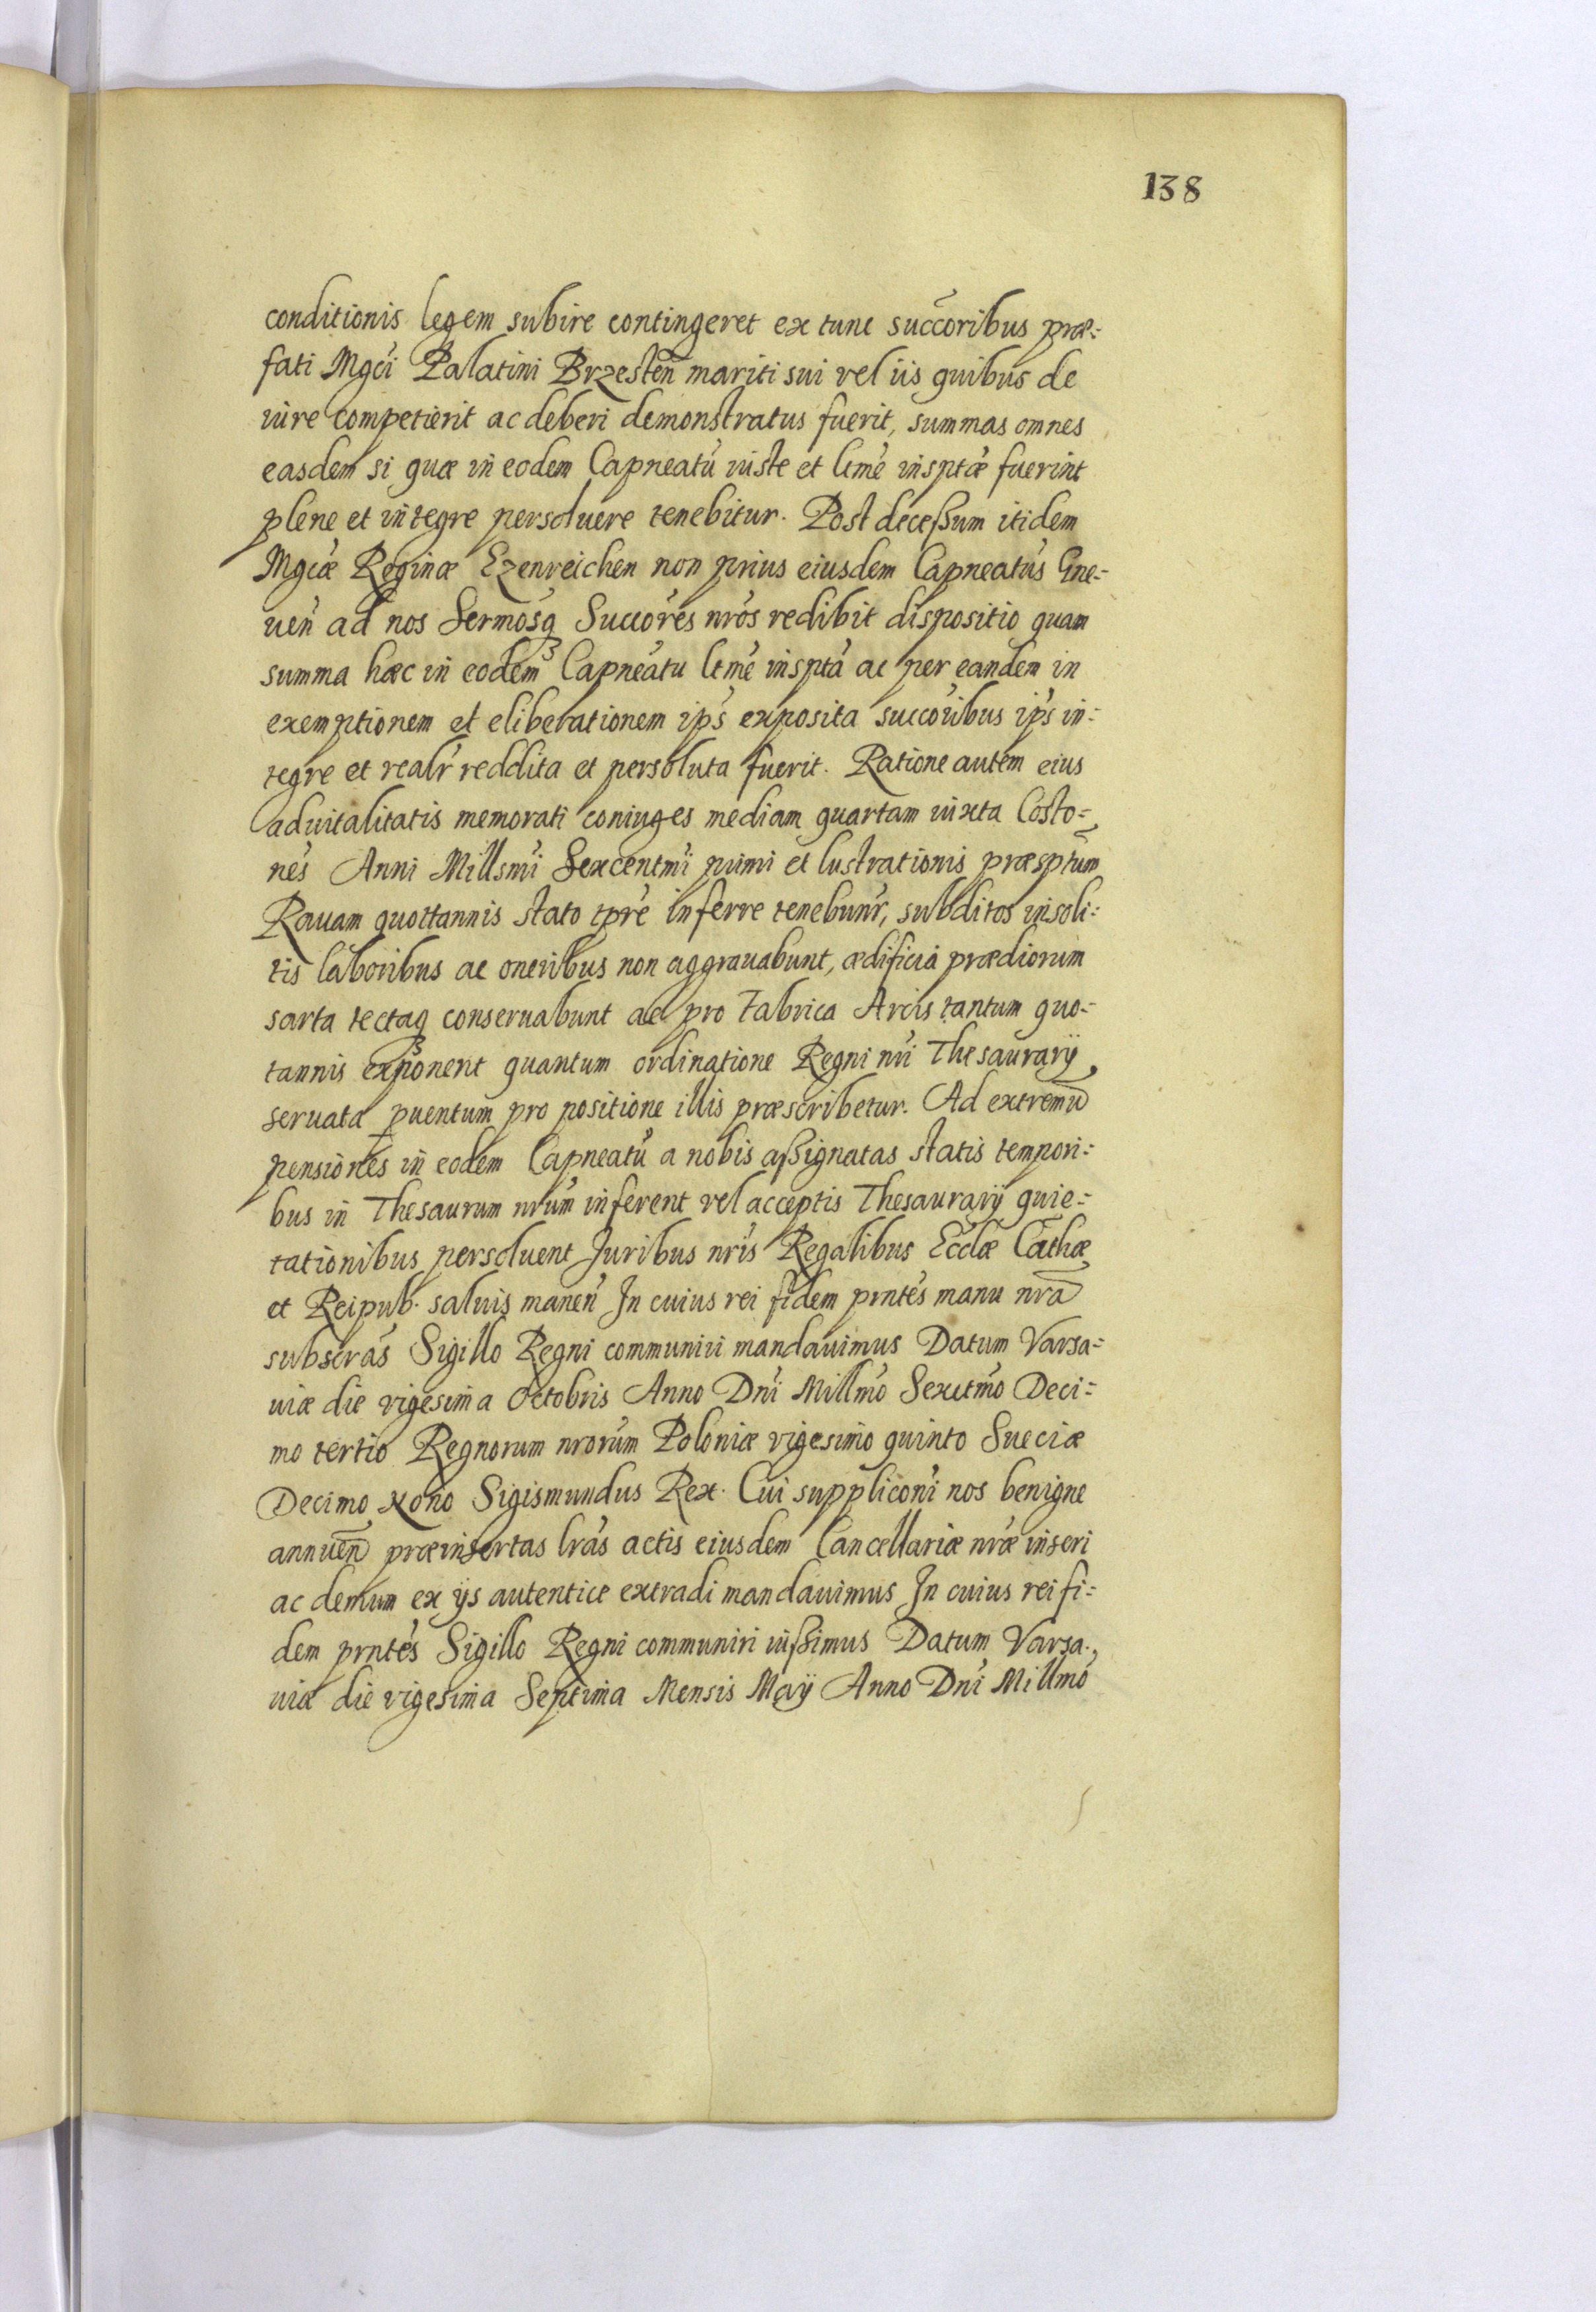 138
conditionis legem subire contingeret ex tunc succoribus præ=
fati Mgci Palatini Brzesten mariti sui vel iis quibus de
iure competierit ac deberi demonstratus fuerit, summas omnes
easdem si quæ in eodem Capneatu iuste et ltme insptæ fuerint
plene et integre persoluere tenebitur. Post decessum itidem
Mgcæ Reginæ Ezenreichen non prius eiusdem Capneatus Gne=
uen ad nos Sermosq Succores nros redibit dispositio quam
summa hæc in eodem Capneatu ltme inspta ac per eandem in
exemptionem et eliberationem ips exposita succoribus ips in=
tegre et realr reddita et persoluta fuerit. Ratione autem eius
aduitalitatis memorati coniuges mediam quartam iuxta Costo=
nes Anni Millsmi Sexcentmi primi et lustrationis præsptum
Rauam quottannis stato tpre inferre tenebunr, subditos insoli=
tis laboribus ac oneribus non aggrauabunt, ædificia prædiorum
sarta tectaq conseruabunt ac pro Fabrica Arcis tantum quo=
tannis exponent quantum ordinatione Regni nri Thesaurarij
seruata puentum pro positione illis præscribetur. Ad extremu
pensiones in eodem Capneatu a nobis assignatas statis tempori=
bus in Thesaurum nrum inferent vel acceptis Thesaurarij quie=
tationibus persoluent Juribus nris Regalibus Ecclæ Cathæ
et Reipub. saluis manen In cuius rei fidem prntes manu nra
subscras Sigillo Regni communiri mandauimus Datum Varsa=
uiæ die vigesima Octobris Anno Dni Millmo Sexctmo Deci=
mo tertio Regnorum nrorum Poloniæ vigesimo quinto Sueciæ
Decimo Nono Sigismundus Rex. Cui suppliconi nos benigne
annuen præinsertas lras actis eiusdem Cancellariæ nræ inseri
ac demum ex ijs autentice extradi mandauimus In cuius rei fi=
dem prntes Sigillo Regni communiri iussimus Datum Varsa=
uiæ die vigesima Septima Mensis Maij Anno Dni Millmo